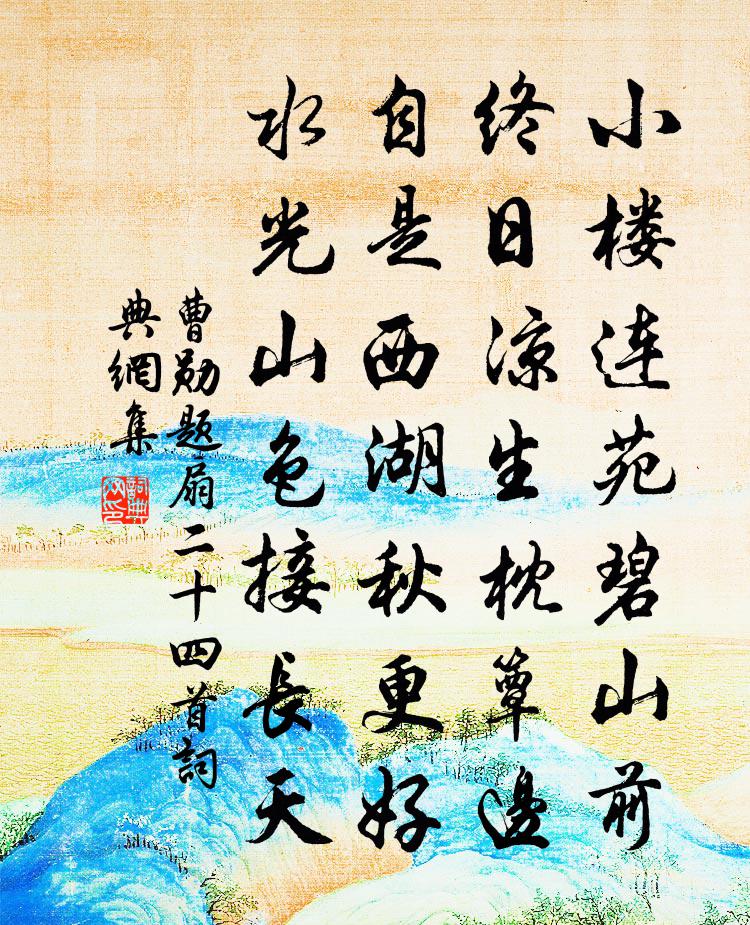 小楼连苑碧山前
终日凉生枕簟边
自是西湖秋更好
水光山色接長天
曹勋题扇二十四首詞
典網集
詞典